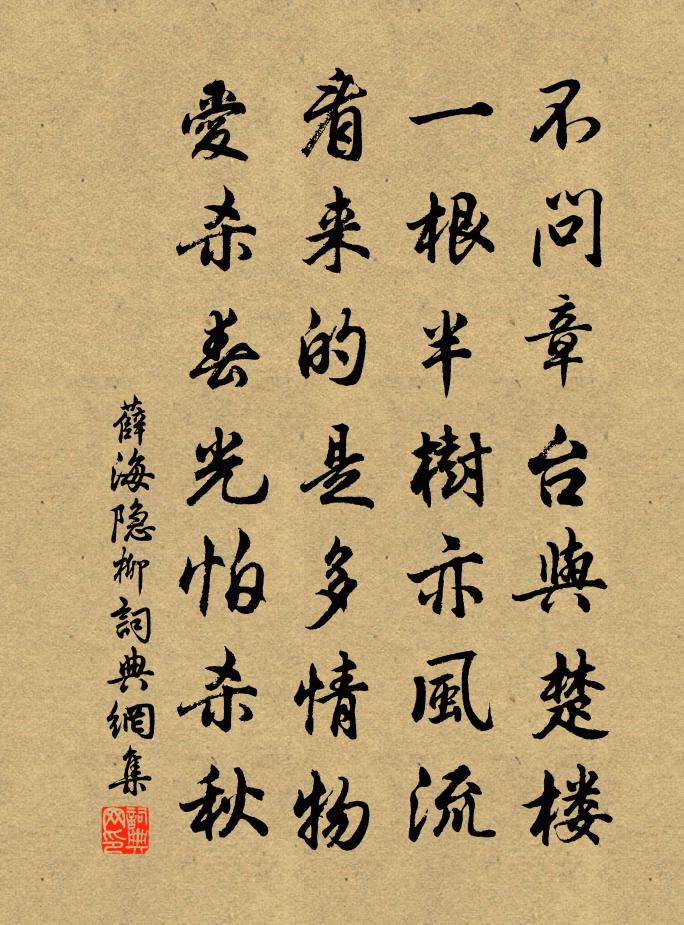 不问章台與楚楼
一根半樹亦風流
看来的是多情物
愛杀春光怕杀秋
薛海隐柳詞典網集
詞典网印